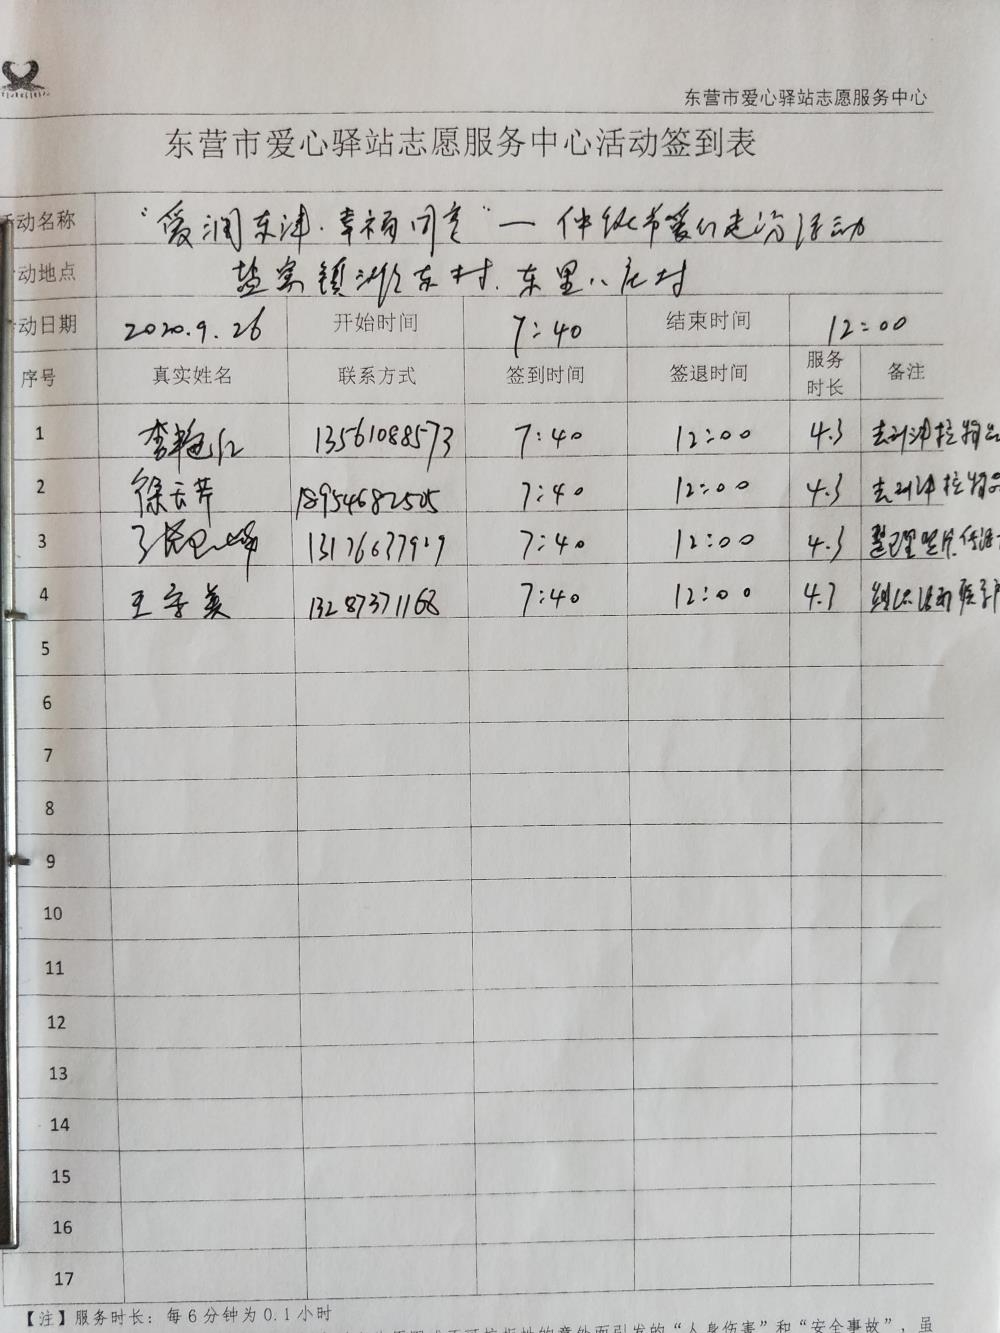 东营市爱心驿站志愿服务中心
东营市爱心驿站志愿服务中心活动签到表
动名称 "爱润东津·幸福同享"— 仲秋节爱心走访活动
动地点 盐窝镇 东村、东里八庄村
动日期 2020.9.26 开始时间 7:40 结束时间 12:00
序号 真实姓名 联系方式 签到时间 签退时间 服务时长 备注
1 李艳红 13561088573 7:40 12:00 4.3 去利津拉物品
2 徐云芹 18954682505 7:40 12:00 4.3 去利津拉物品
3 7:40 12:00 4.3 整理
4 王字美 13287371168 7:40 12:00 4.3 组织活动
5
6
7
8
9
10
11
12
13
14
15
16
17
【注】服务时长：每6分钟为0.1小时
意外而引发的“人身伤害”和“安全事故”，虽